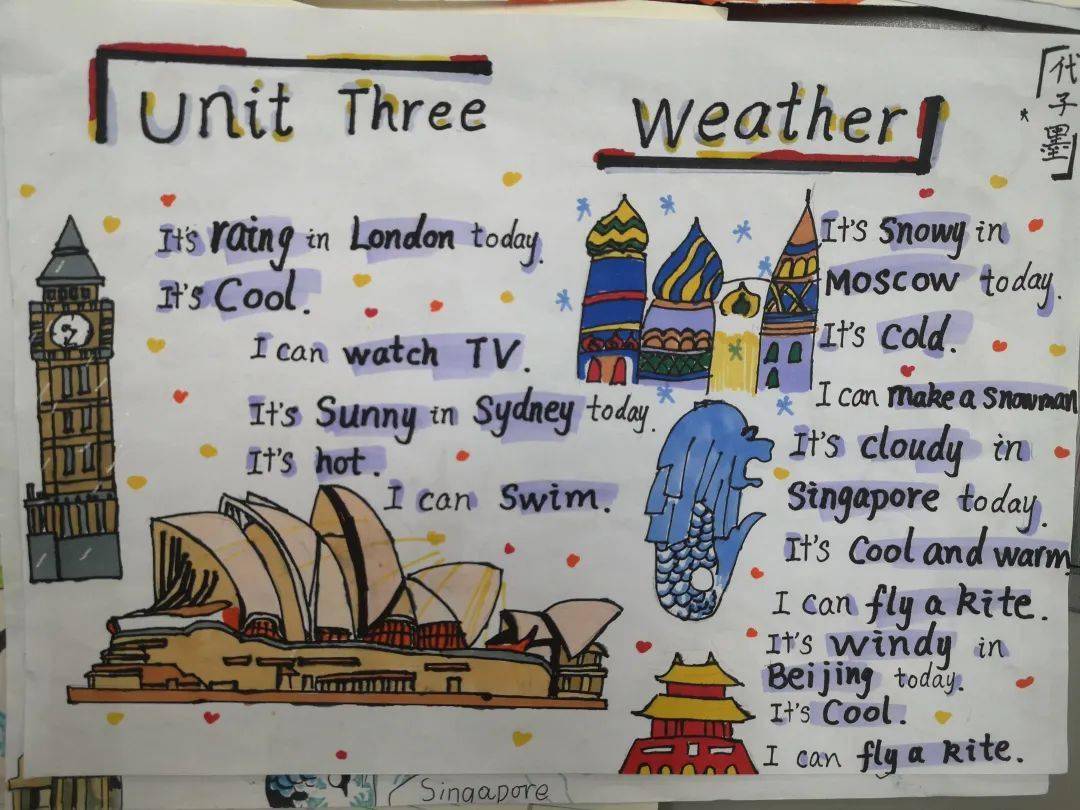 Unit Three
Weather
代子墨
It's raing in London today.
It's Cool.
I can watch TV.
It's Sunny in Sydney today.
It's hot.
I can Swim.
It's Snowy in
Moscow today.
It's cold.
I can make a snowman
It's cloudy in
Singapore today.
It's Cool and warm
I can fly a kite.
It's windy in
Beijing today.
It's Cool.
I can fly a kite.
Singapore